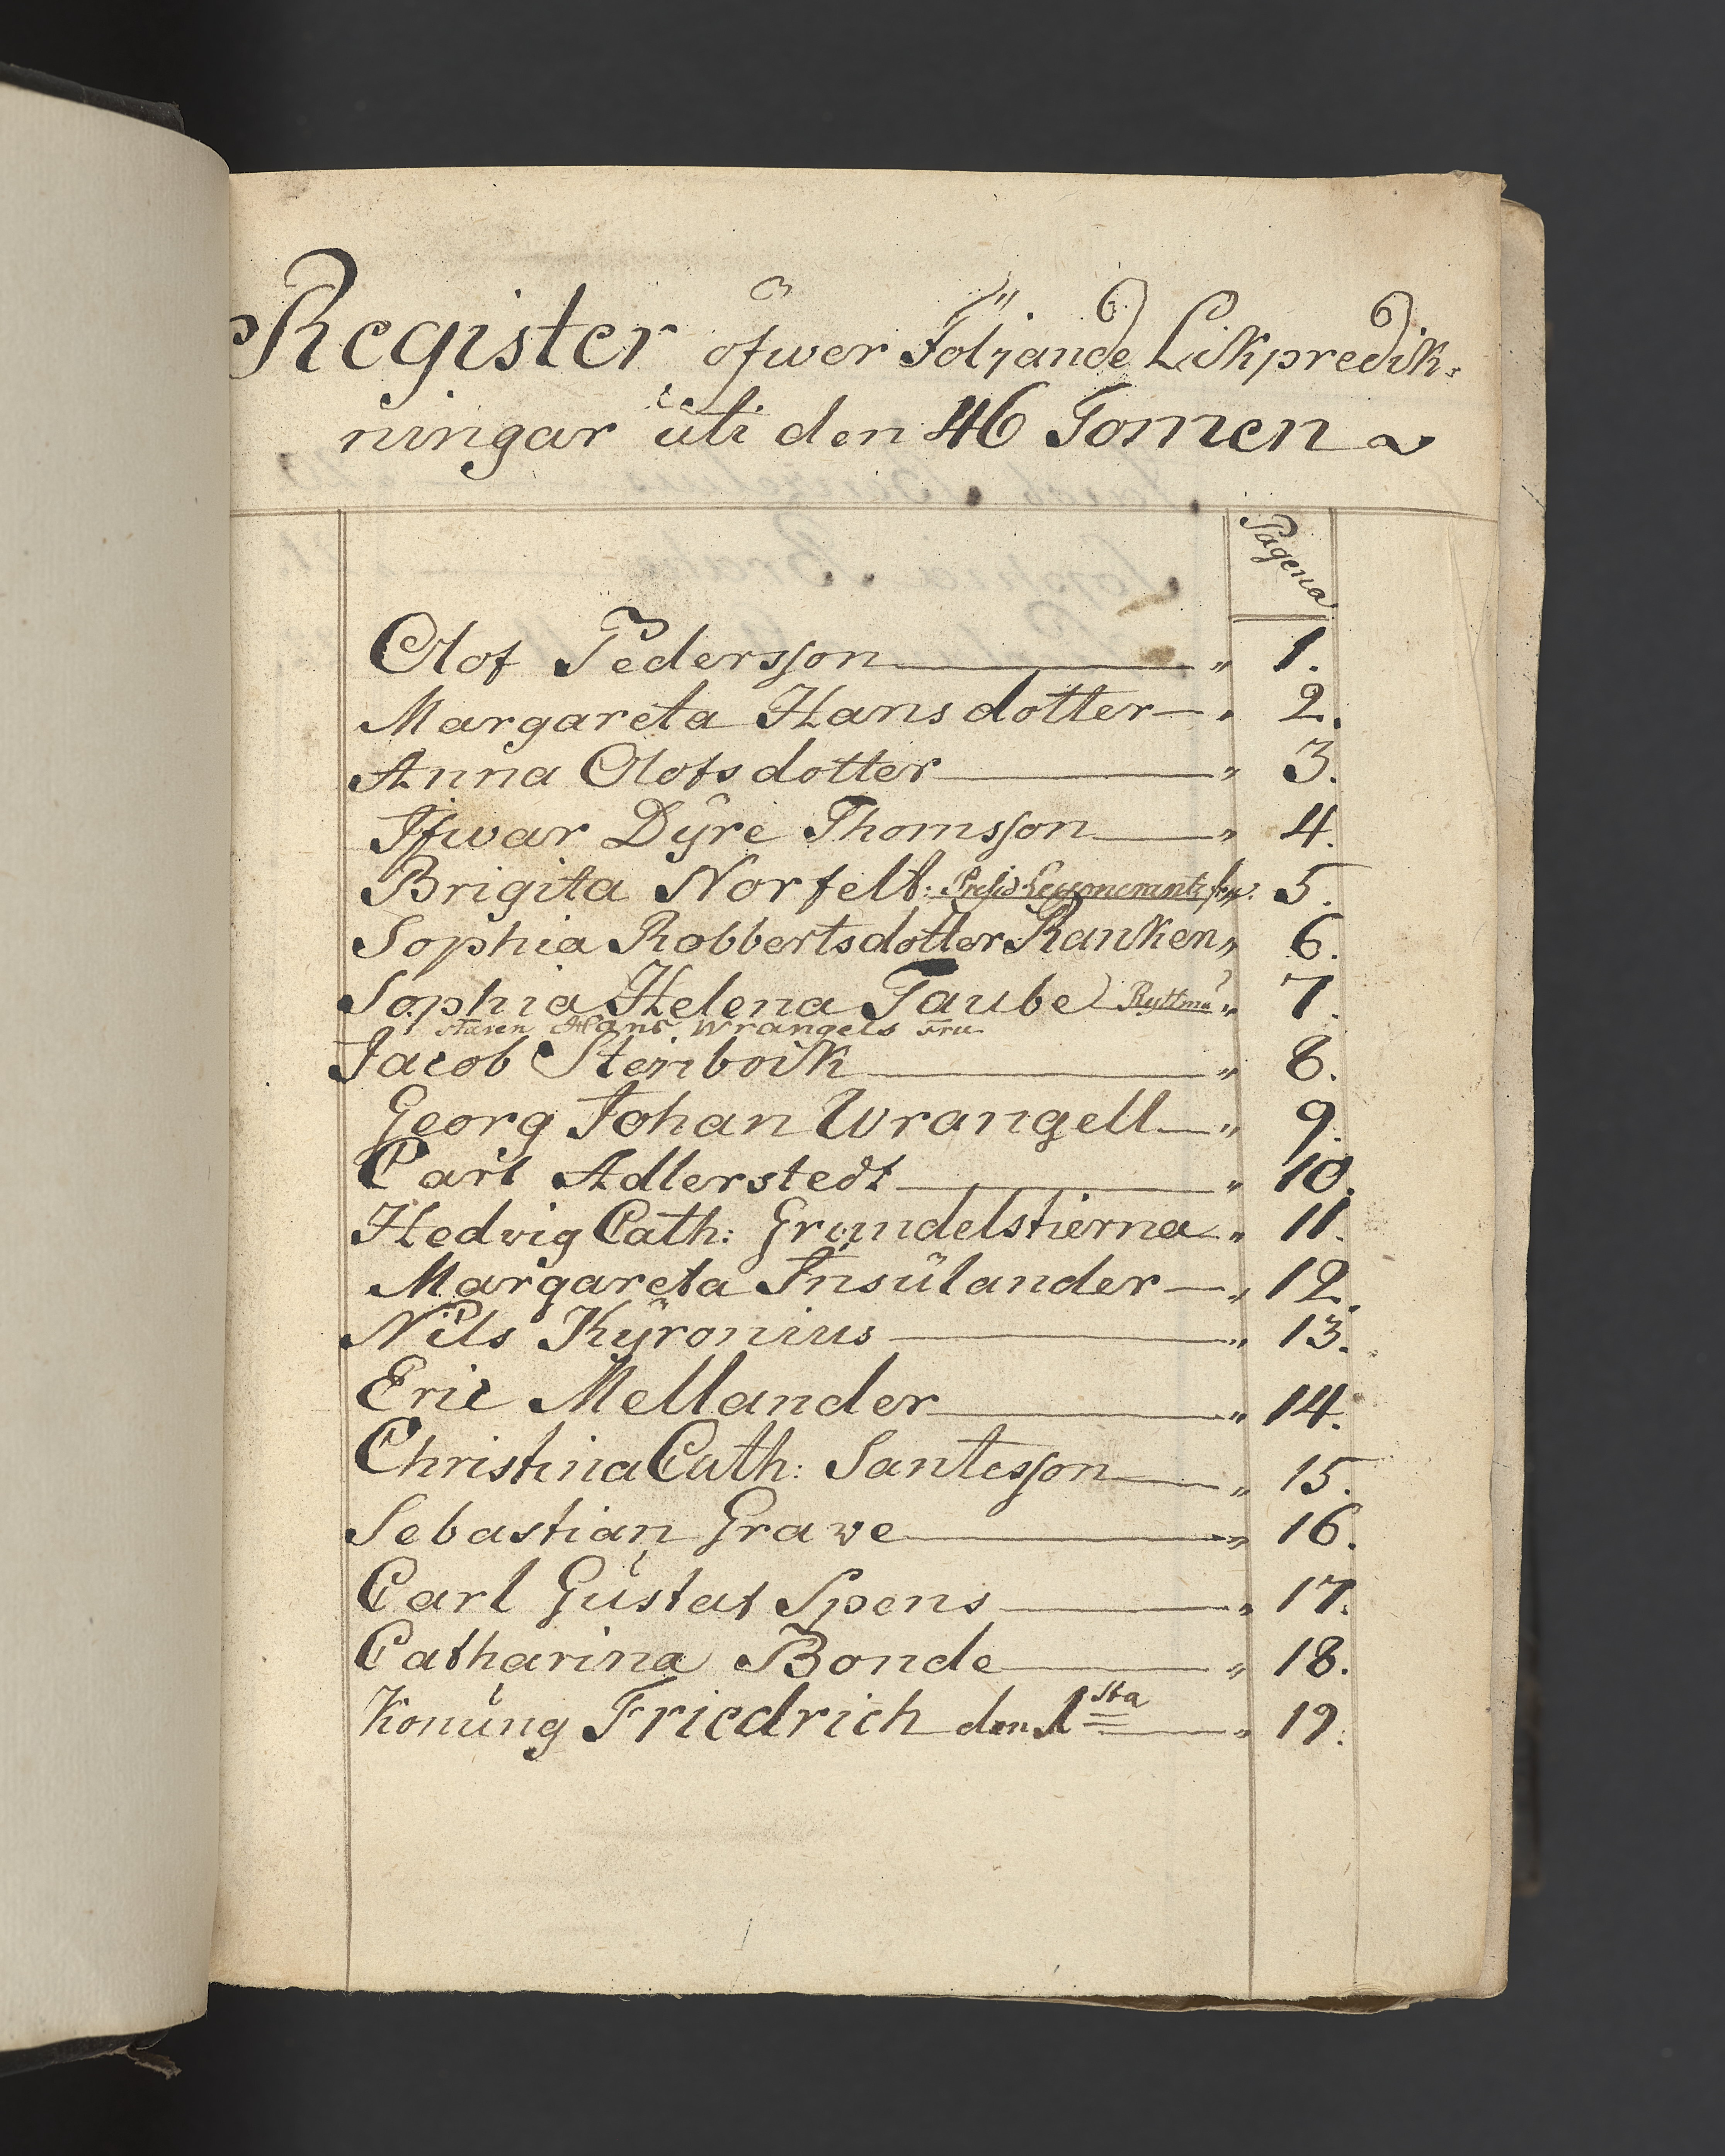 Register öfwer Följande Likpredik:
ningar uti den 46 Tomen
Pagena
Olof Pedersson „ 1.
Margareta Hans dotter „ 2.
Anna Olofs dotter „ 3.
Ifwar Dÿre Thomsson „ 4.
Brigita Norfelt: fru. 5.
Sophia Robbertsdotter Ranken „ 6.
Sophia Helena Taube Ryttmä „ 7.
staren Hans Wrangels Fru
Jacob Steinbock „ 8.
Georg Johan Wrangell „ 9.
Carl Adlerstedt „ 10.
Hedvig Cath: Grundelstierna „ 11.
Margareta Insulander „ 12.
Nils Kÿronius „ 13.
Eric Mellander „ 14.
Christina Cath: Santesson „ 15.
Sebastian Grave „ 16.
Carl Gustaf Spens „ 17.
Catharina Bonde „ 18.
Konung Friedrich den 1sta „ 19.